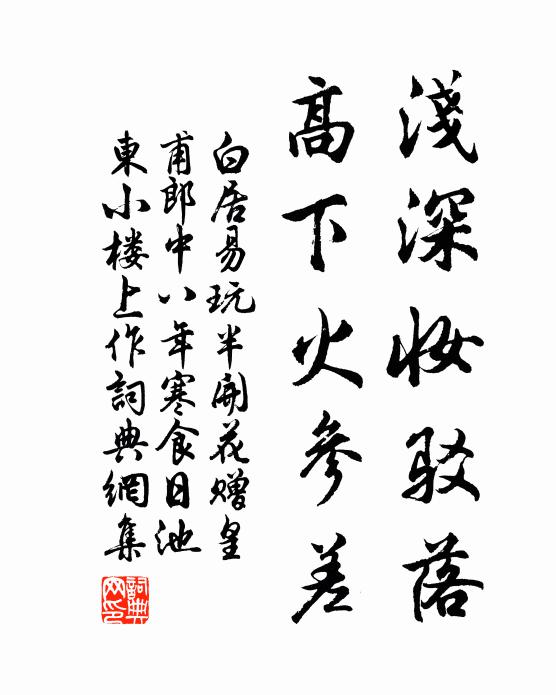 淺深妝駁落
高下火參差
白居易玩半開花贈皇
甫郎中八年寒食日池
東小樓上作詞典網集
詞典
网印